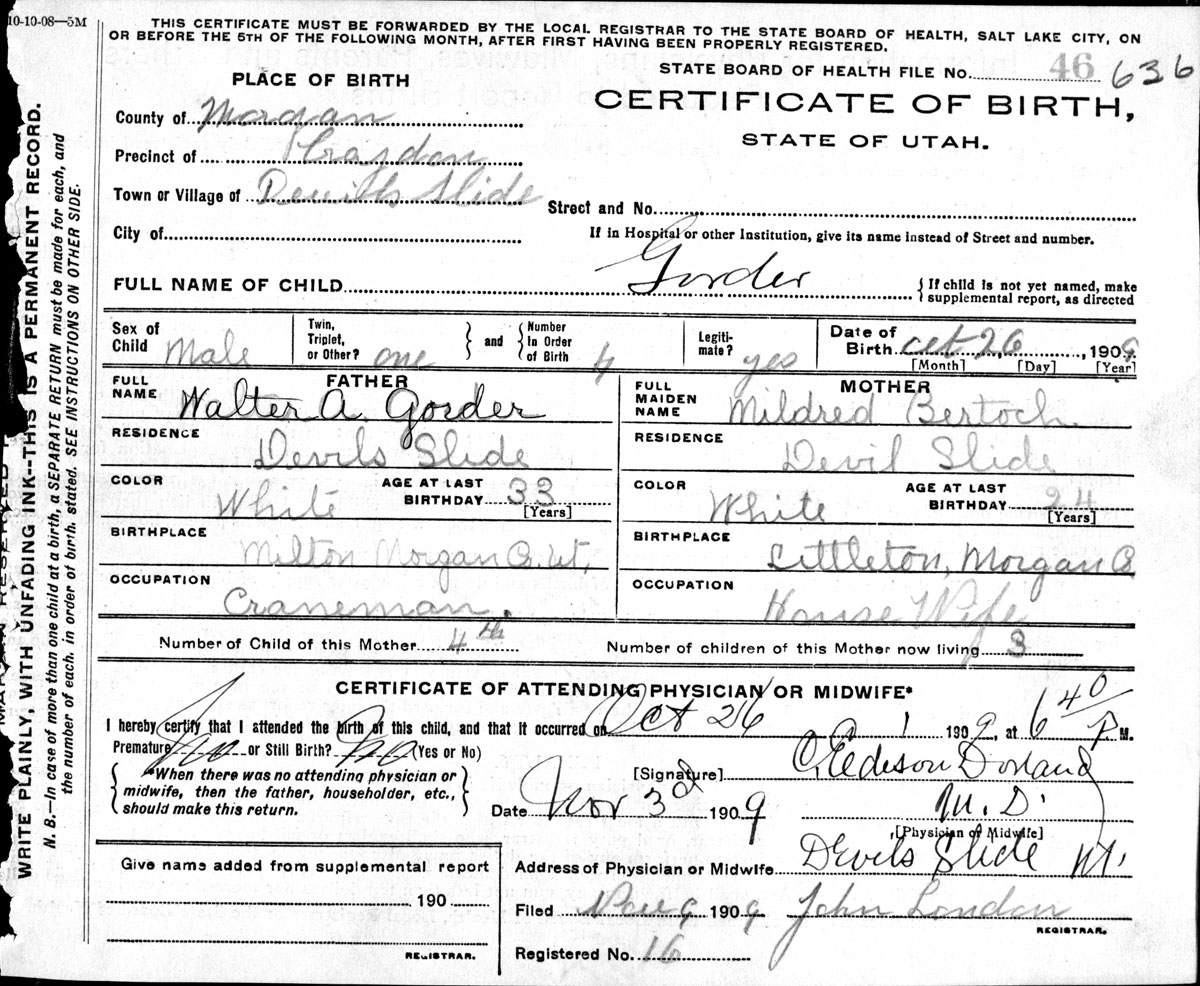 10-10-08—5M
THIS CERTIFICATE MUST BE FORWARDED BY THE LOCAL REGISTRAR TO THE STATE BOARD OF HEALTH, SALT LAKE CITY, ON
OR BEFORE THE 5TH OF THE FOLLOWING MONTH, AFTER FIRST HAVING BEEN PROPERLY REGISTERED.
PLACE OF BIRTH
STATE BOARD OF HEALTH FILE No. 46 636
CERTIFICATE OF BIRTH,
STATE OF UTAH.
County of Morgan
Precinct of Croydon
Town or Village of Devils Slide
Street and No.
City of
If in Hospital or other Institution, give its name instead of Street and number.
FULL NAME OF CHILD Gorder
If child is not yet named, make
supplemental report, as directed
Sex of Child Male
Twin, Triplet, or Other? one
and
Number In Order of Birth 4
Legitimate? yes
Date of Birth Oct 26, 1909
[Month] [Day] [Year]
FATHER
FULL NAME Walter A. Gorder
RESIDENCE Devils Slide
COLOR White AGE AT LAST BIRTHDAY 33 [Years]
BIRTHPLACE Milton Morgan Co. Ut,
OCCUPATION Craneman.
MOTHER
FULL MAIDEN NAME Mildred Bertoch.
RESIDENCE Devil Slide
COLOR White AGE AT LAST BIRTHDAY 24 [Years]
BIRTHPLACE Littleton, Morgan Co
OCCUPATION House Wife
Number of Child of this Mother 4th
Number of children of this Mother now living 3
CERTIFICATE OF ATTENDING PHYSICIAN OR MIDWIFE*
I hereby certify that I attended the birth of this child, and that it occurred on Oct 26 1909, at 6 40 P.M.
Premature no or Still Birth? no (Yes or No)
*When there was no attending physician or
midwife, then the father, householder, etc.,
should make this return.
[Signature] Edeson Dorland
M.D.
[Physician or Midwife]
Date Nov 3d 1909
Address of Physician or Midwife Devils Slide Ut.
Give name added from supplemental report
190
REGISTRAR.
Filed Nov 9 1909 John London
REGISTRAR.
Registered No. 16
WRITE PLAINLY, WITH UNFADING INK--THIS IS A PERMANENT RECORD.
N. B.—In case of more than one child at a birth, a SEPARATE RETURN must be made for each, and
the number of each, in order of birth, stated. SEE INSTRUCTIONS ON OTHER SIDE.